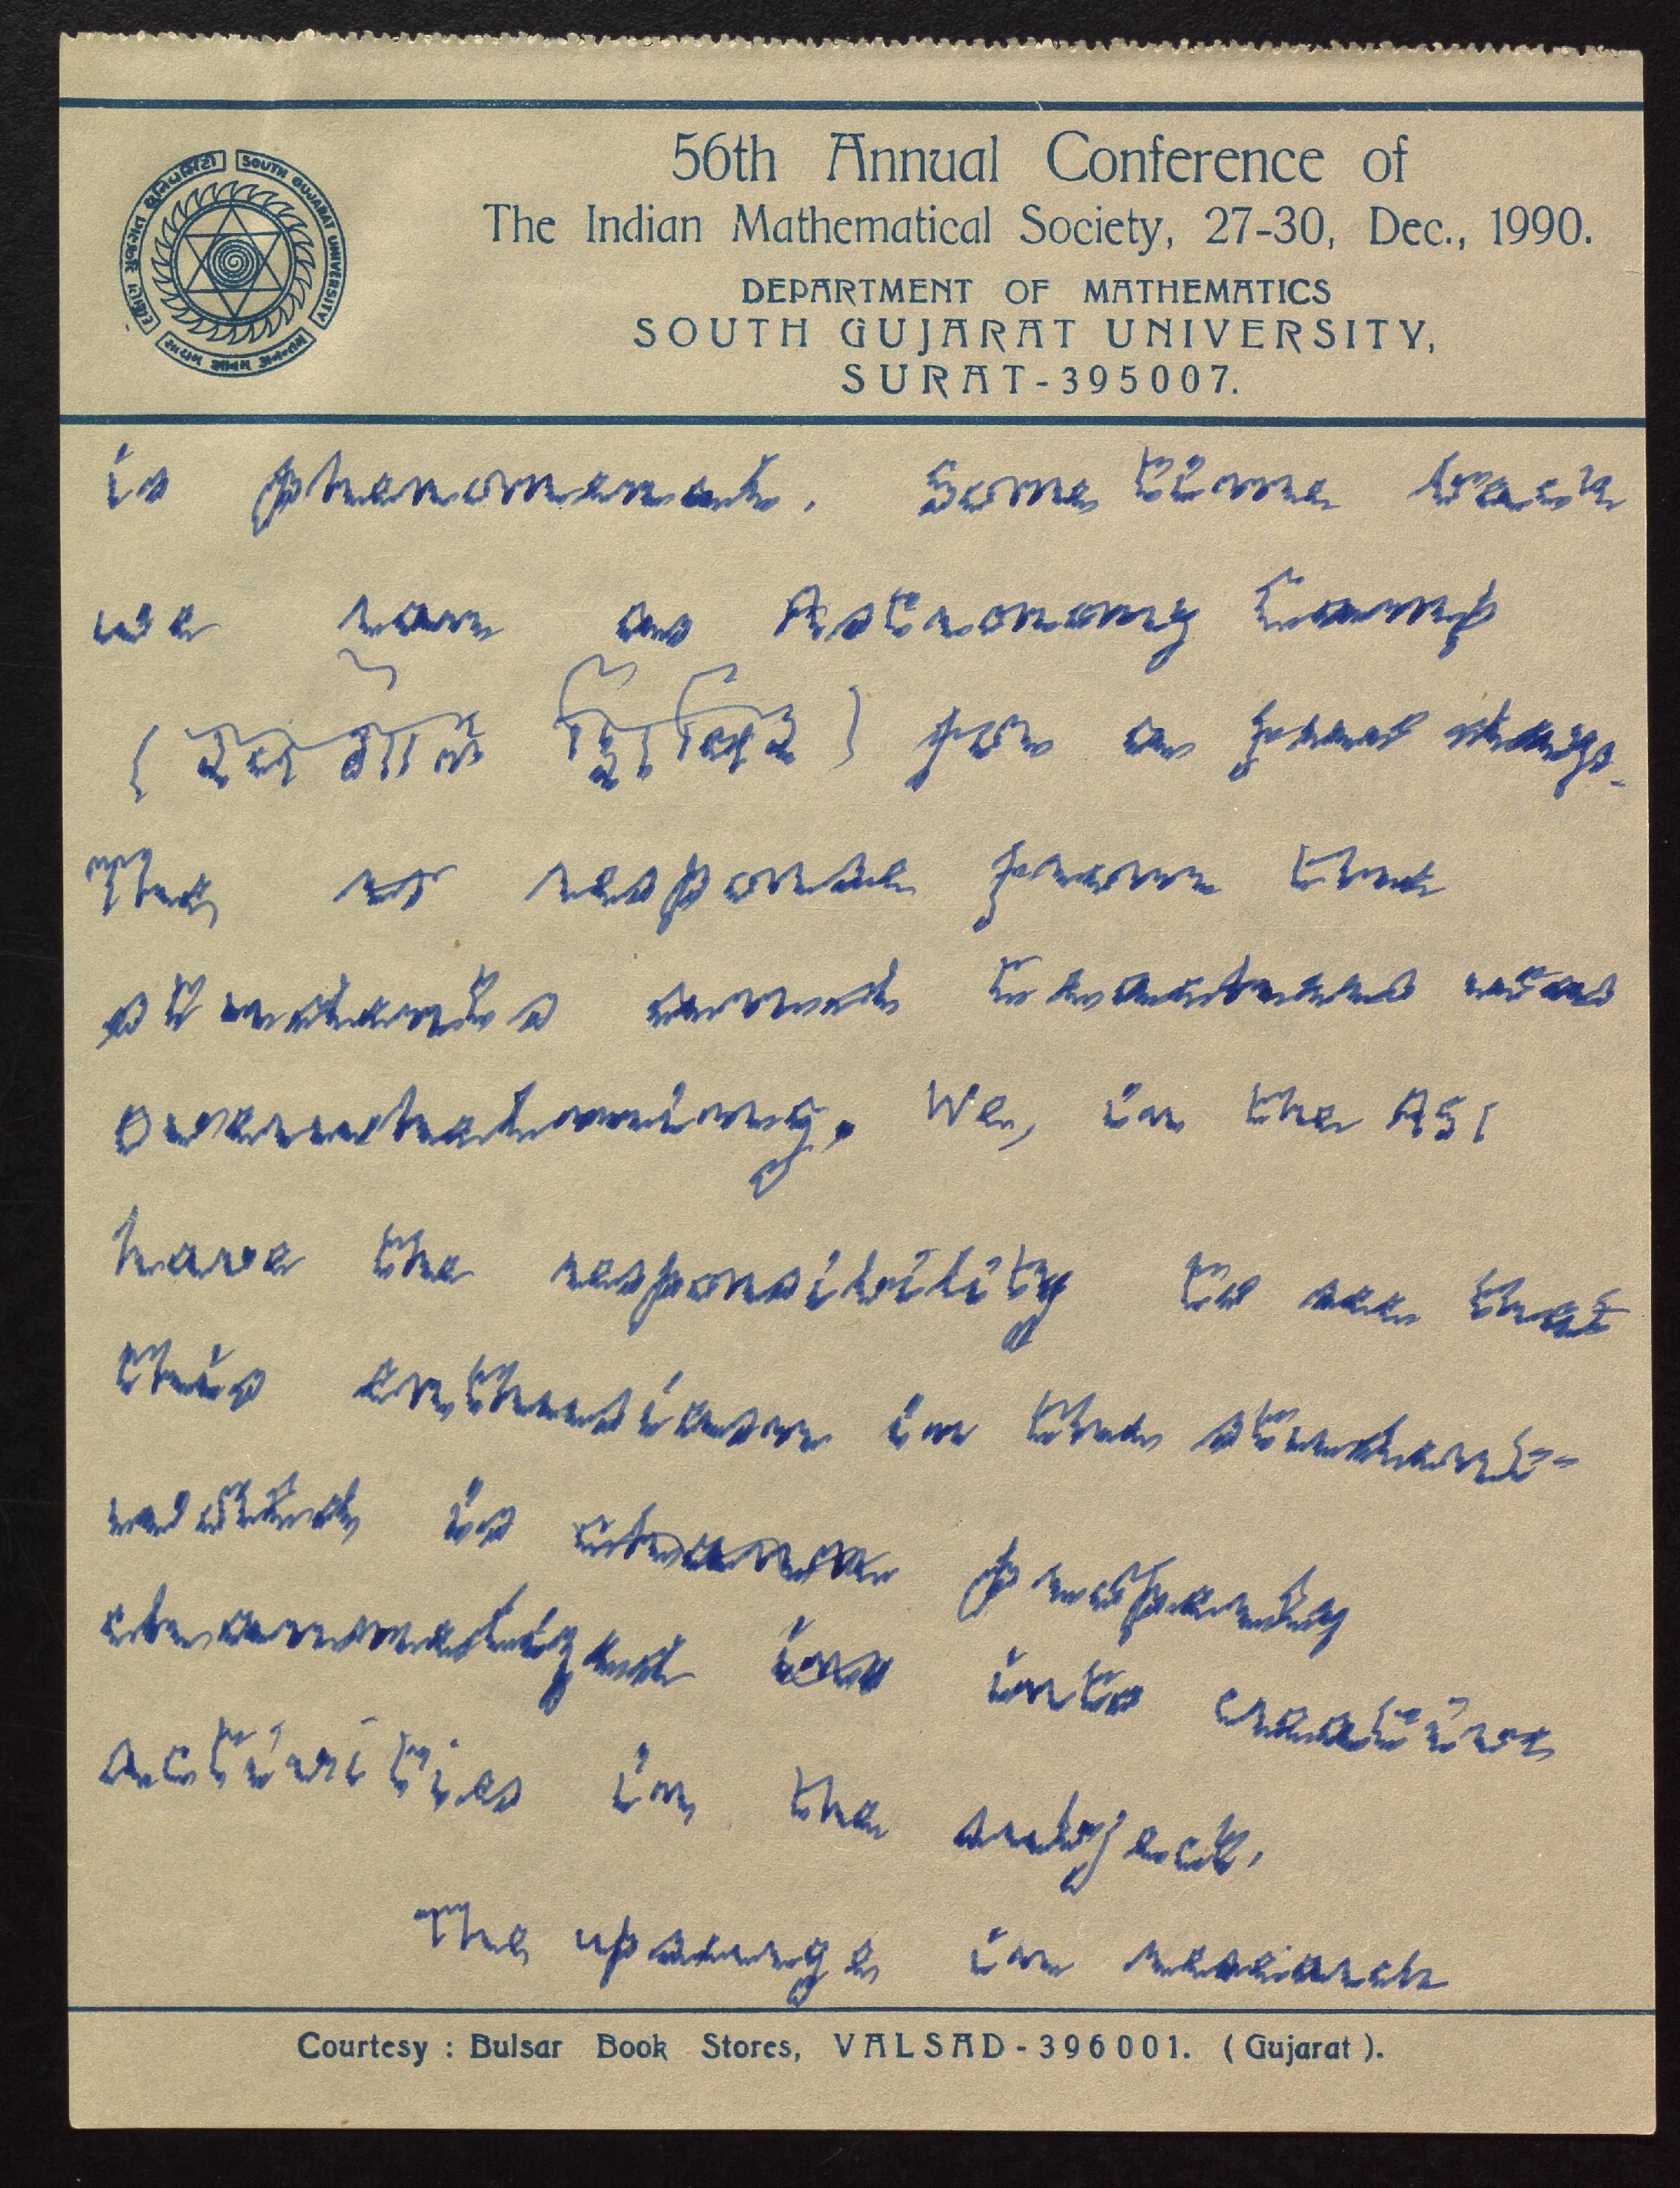 SOUTH GUJARAT UNIVERSITY
56th Annual Conference of
The Indian Mathematical Society, 27-30, Dec., 1990.
DEPARTMENT OF MATHEMATICS
SOUTH GUJARAT UNIVERSITY,
SURAT-395007.
is phenomenal. Some time back
we ran an Astronomy Camp
for a few days.
The response from the
students and teachers was
overwhelming. We, in the ASI
have the responsibility to see that
this enthusiasm in the student-
world is properly
channelized into creative
activities in the subject.
The upsurge in research
Courtesy : Bulsar Book Stores, VALSAD-396001. (Gujarat).